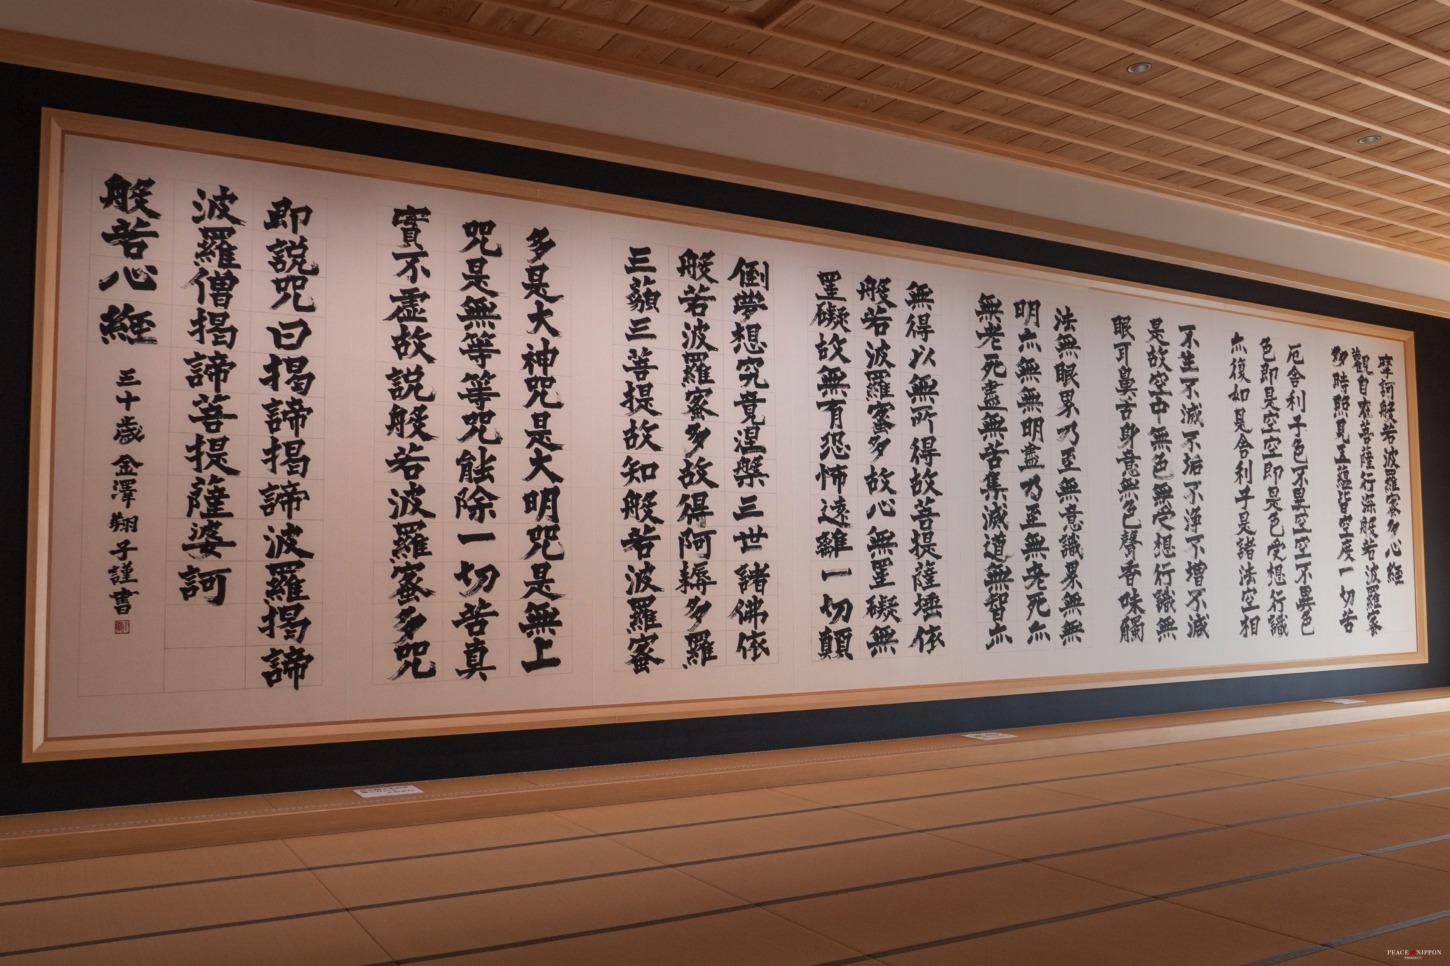 摩訶般若波羅蜜多心経
観自在菩薩行深般若波羅蜜
多時照見五蘊皆空度一切苦
厄舎利子色不異空空不異色
色即是空空即是色受想行識
亦復如是舎利子是諸法空相
不生不滅不垢不浄不増不減
是故空中無色無受想行識無
眼耳鼻舌身意無色聲香味觸
法無眼界乃至無意識界無無
明亦無無明盡乃至無老死亦
無老死盡無苦集滅道無智亦
無得以無所得故菩提薩埵依
般若波羅蜜多故心無罣礙無
罣礙故無有恐怖遠離一切顛
倒夢想究竟涅槃三世諸佛依
般若波羅蜜多故得阿耨多羅
三藐三菩提故知般若波羅蜜
多是大神咒是大明咒是無上
咒是無等等咒能除一切苦真
實不虚故説般若波羅蜜多咒
即説咒曰揭諦揭諦波羅揭諦
波羅僧揭諦菩提薩婆訶
般若心経 三十歳 金澤翔子謹書
PEACE NIPPON
PROJECT